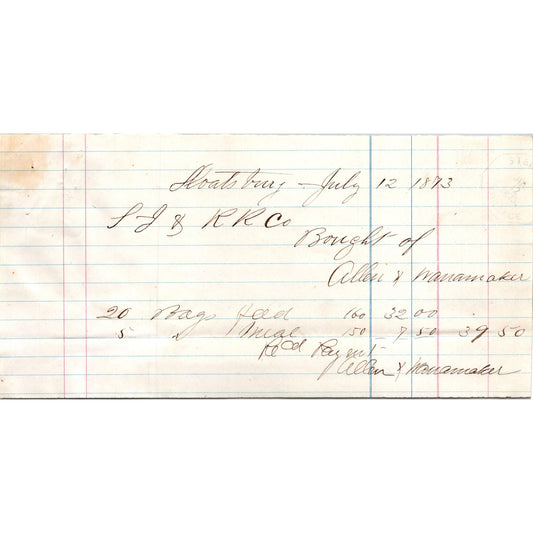 Sloatsburg - July 12 1873
S I & R R Co
Bought of
Allen & Wanamaker
20 Bags Feed 160 32 00
5 " Meal 150 7 50 39 50
Recd Paymt
Allen & Wanamaker